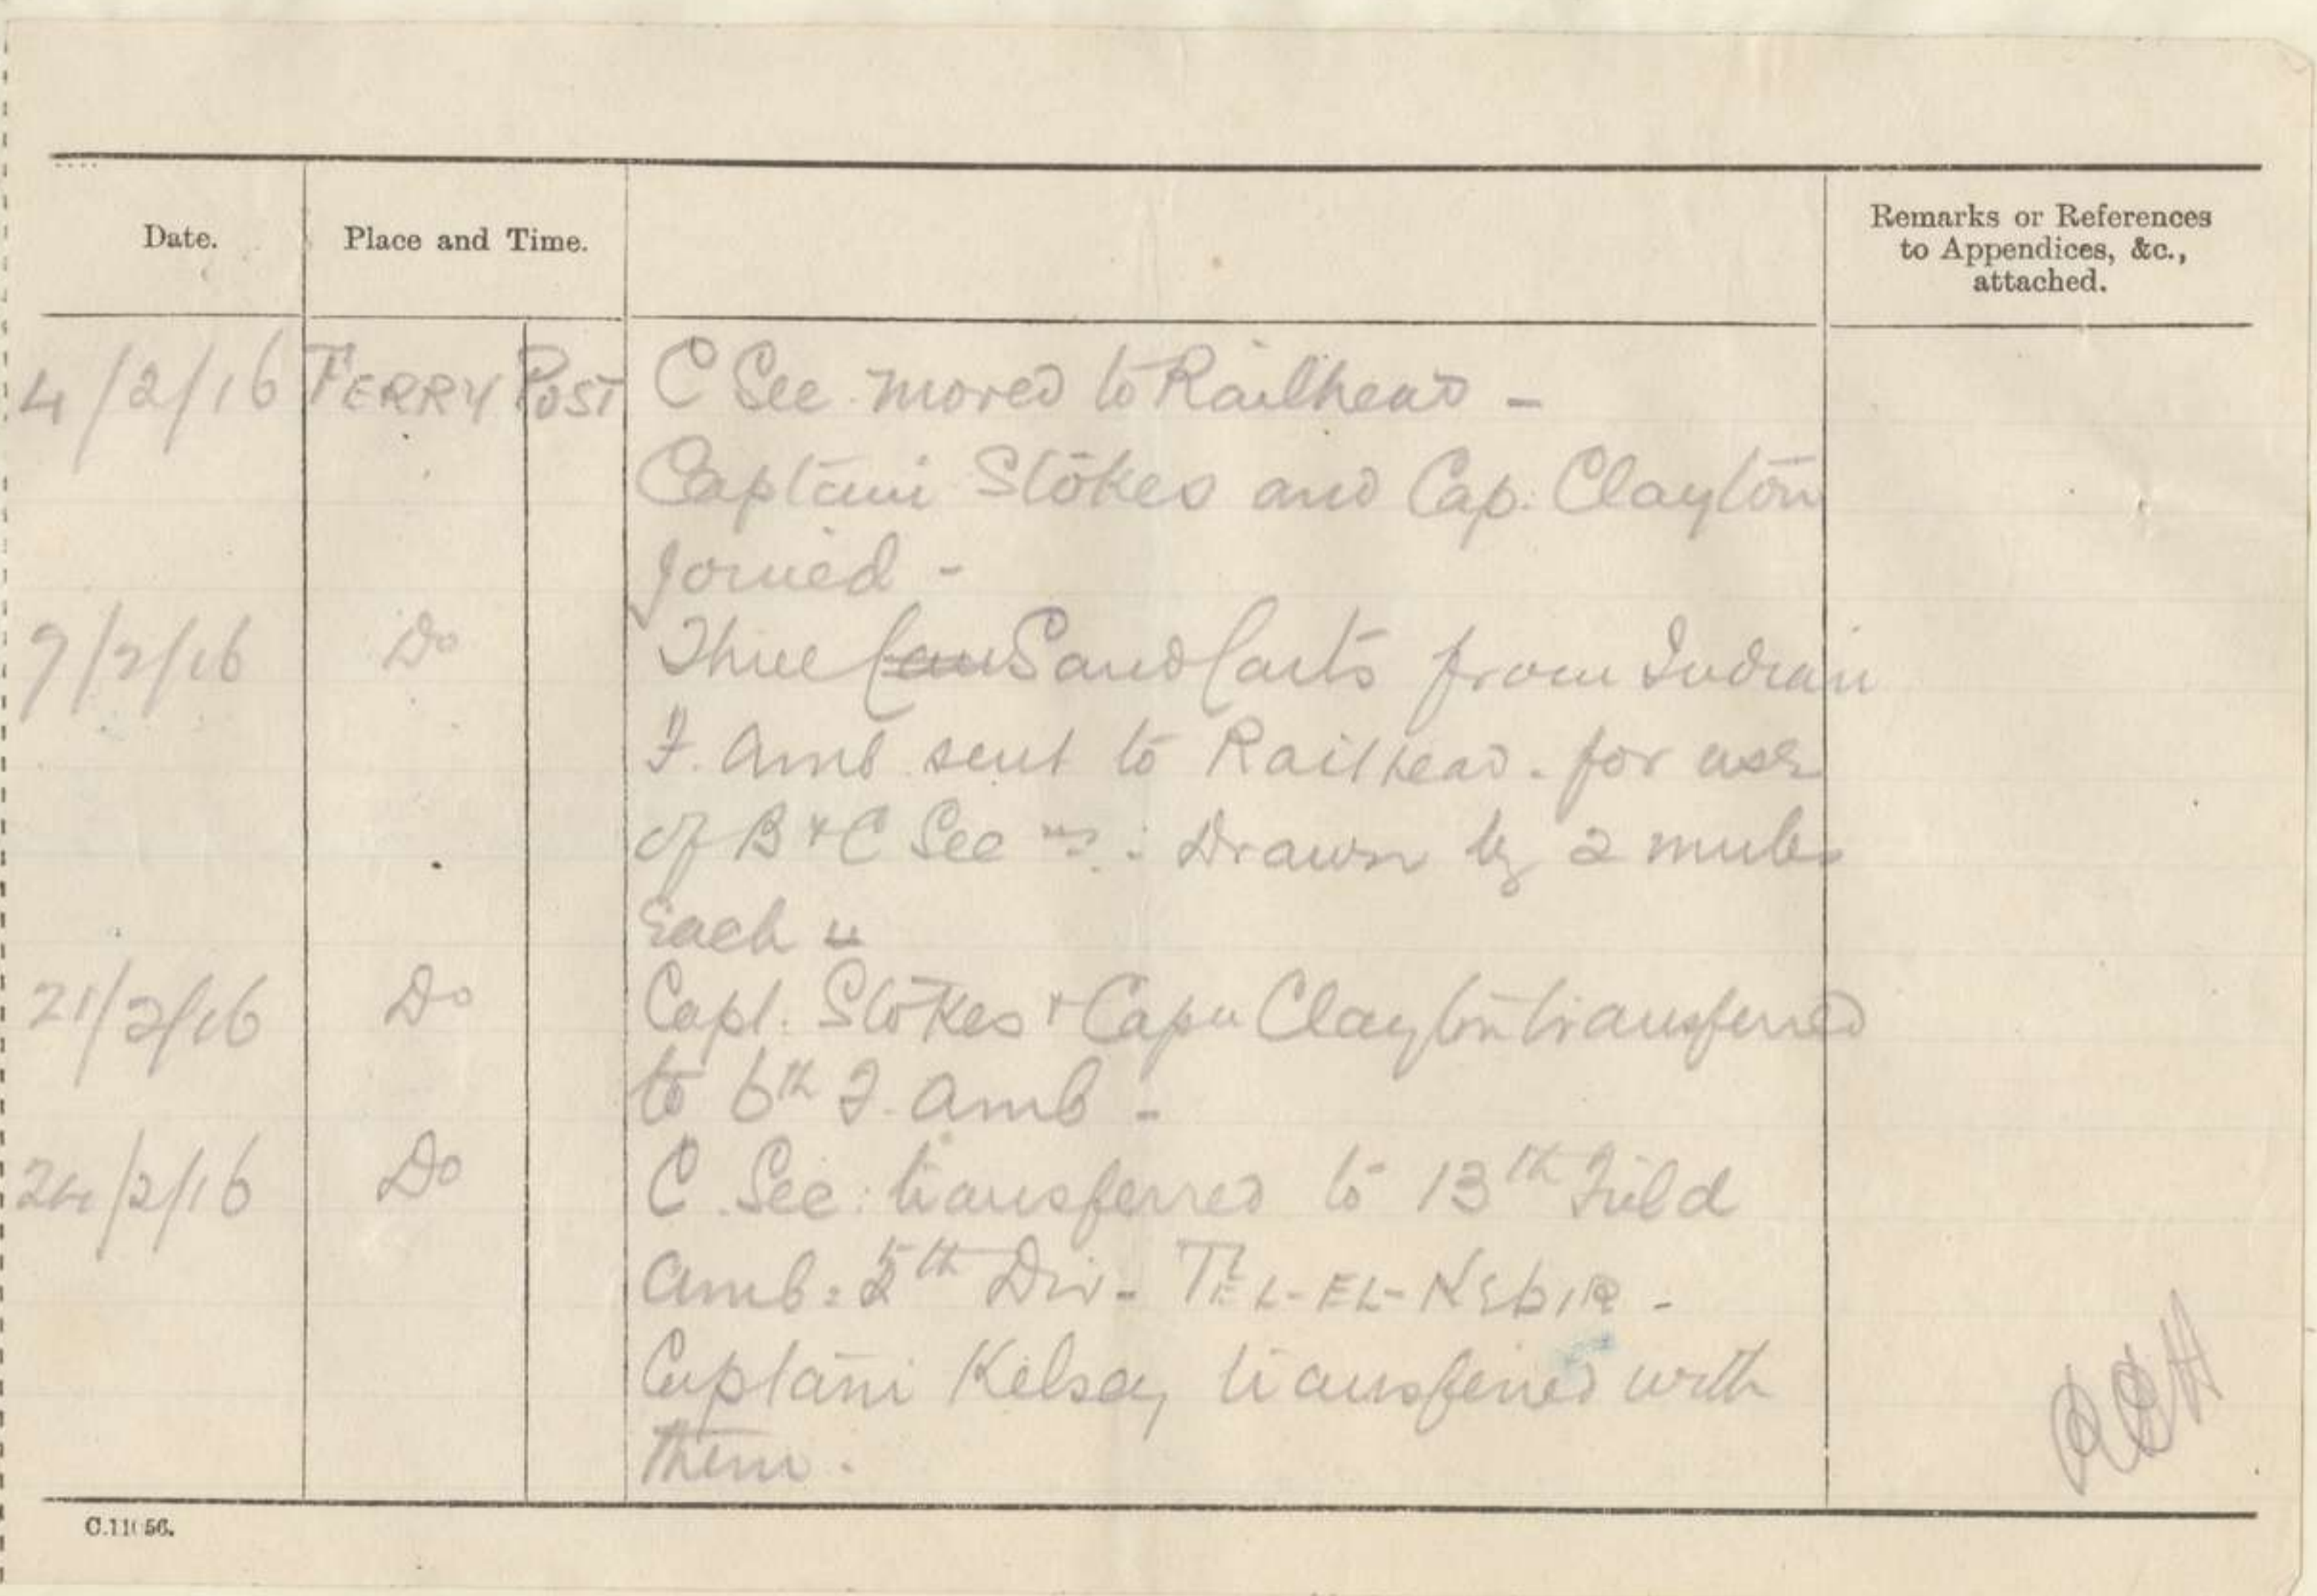 Date.
Place and Time.
Remarks or References
to Appendices, &c.,
attached.
4/2/16 FERRY POST C Sec moved to Railhead -
Captain Stokes and Cap. Clayton
joined -
9/2/16 Do Three Sand Carts from Indian
F. Amb sent to Railhead. for use
of B & C Sec ns: Drawn by 2 mules
Each
21/2/16 Do Capt. Stokes & Cap Clayton transferred
to 6th F. Amb -
24/2/16 Do C. Sec: transferred to 13th Field
Amb: 5th Div - TEL-EL-KEBIR -
Captain Kelsey transferred with
them.
C.11056.